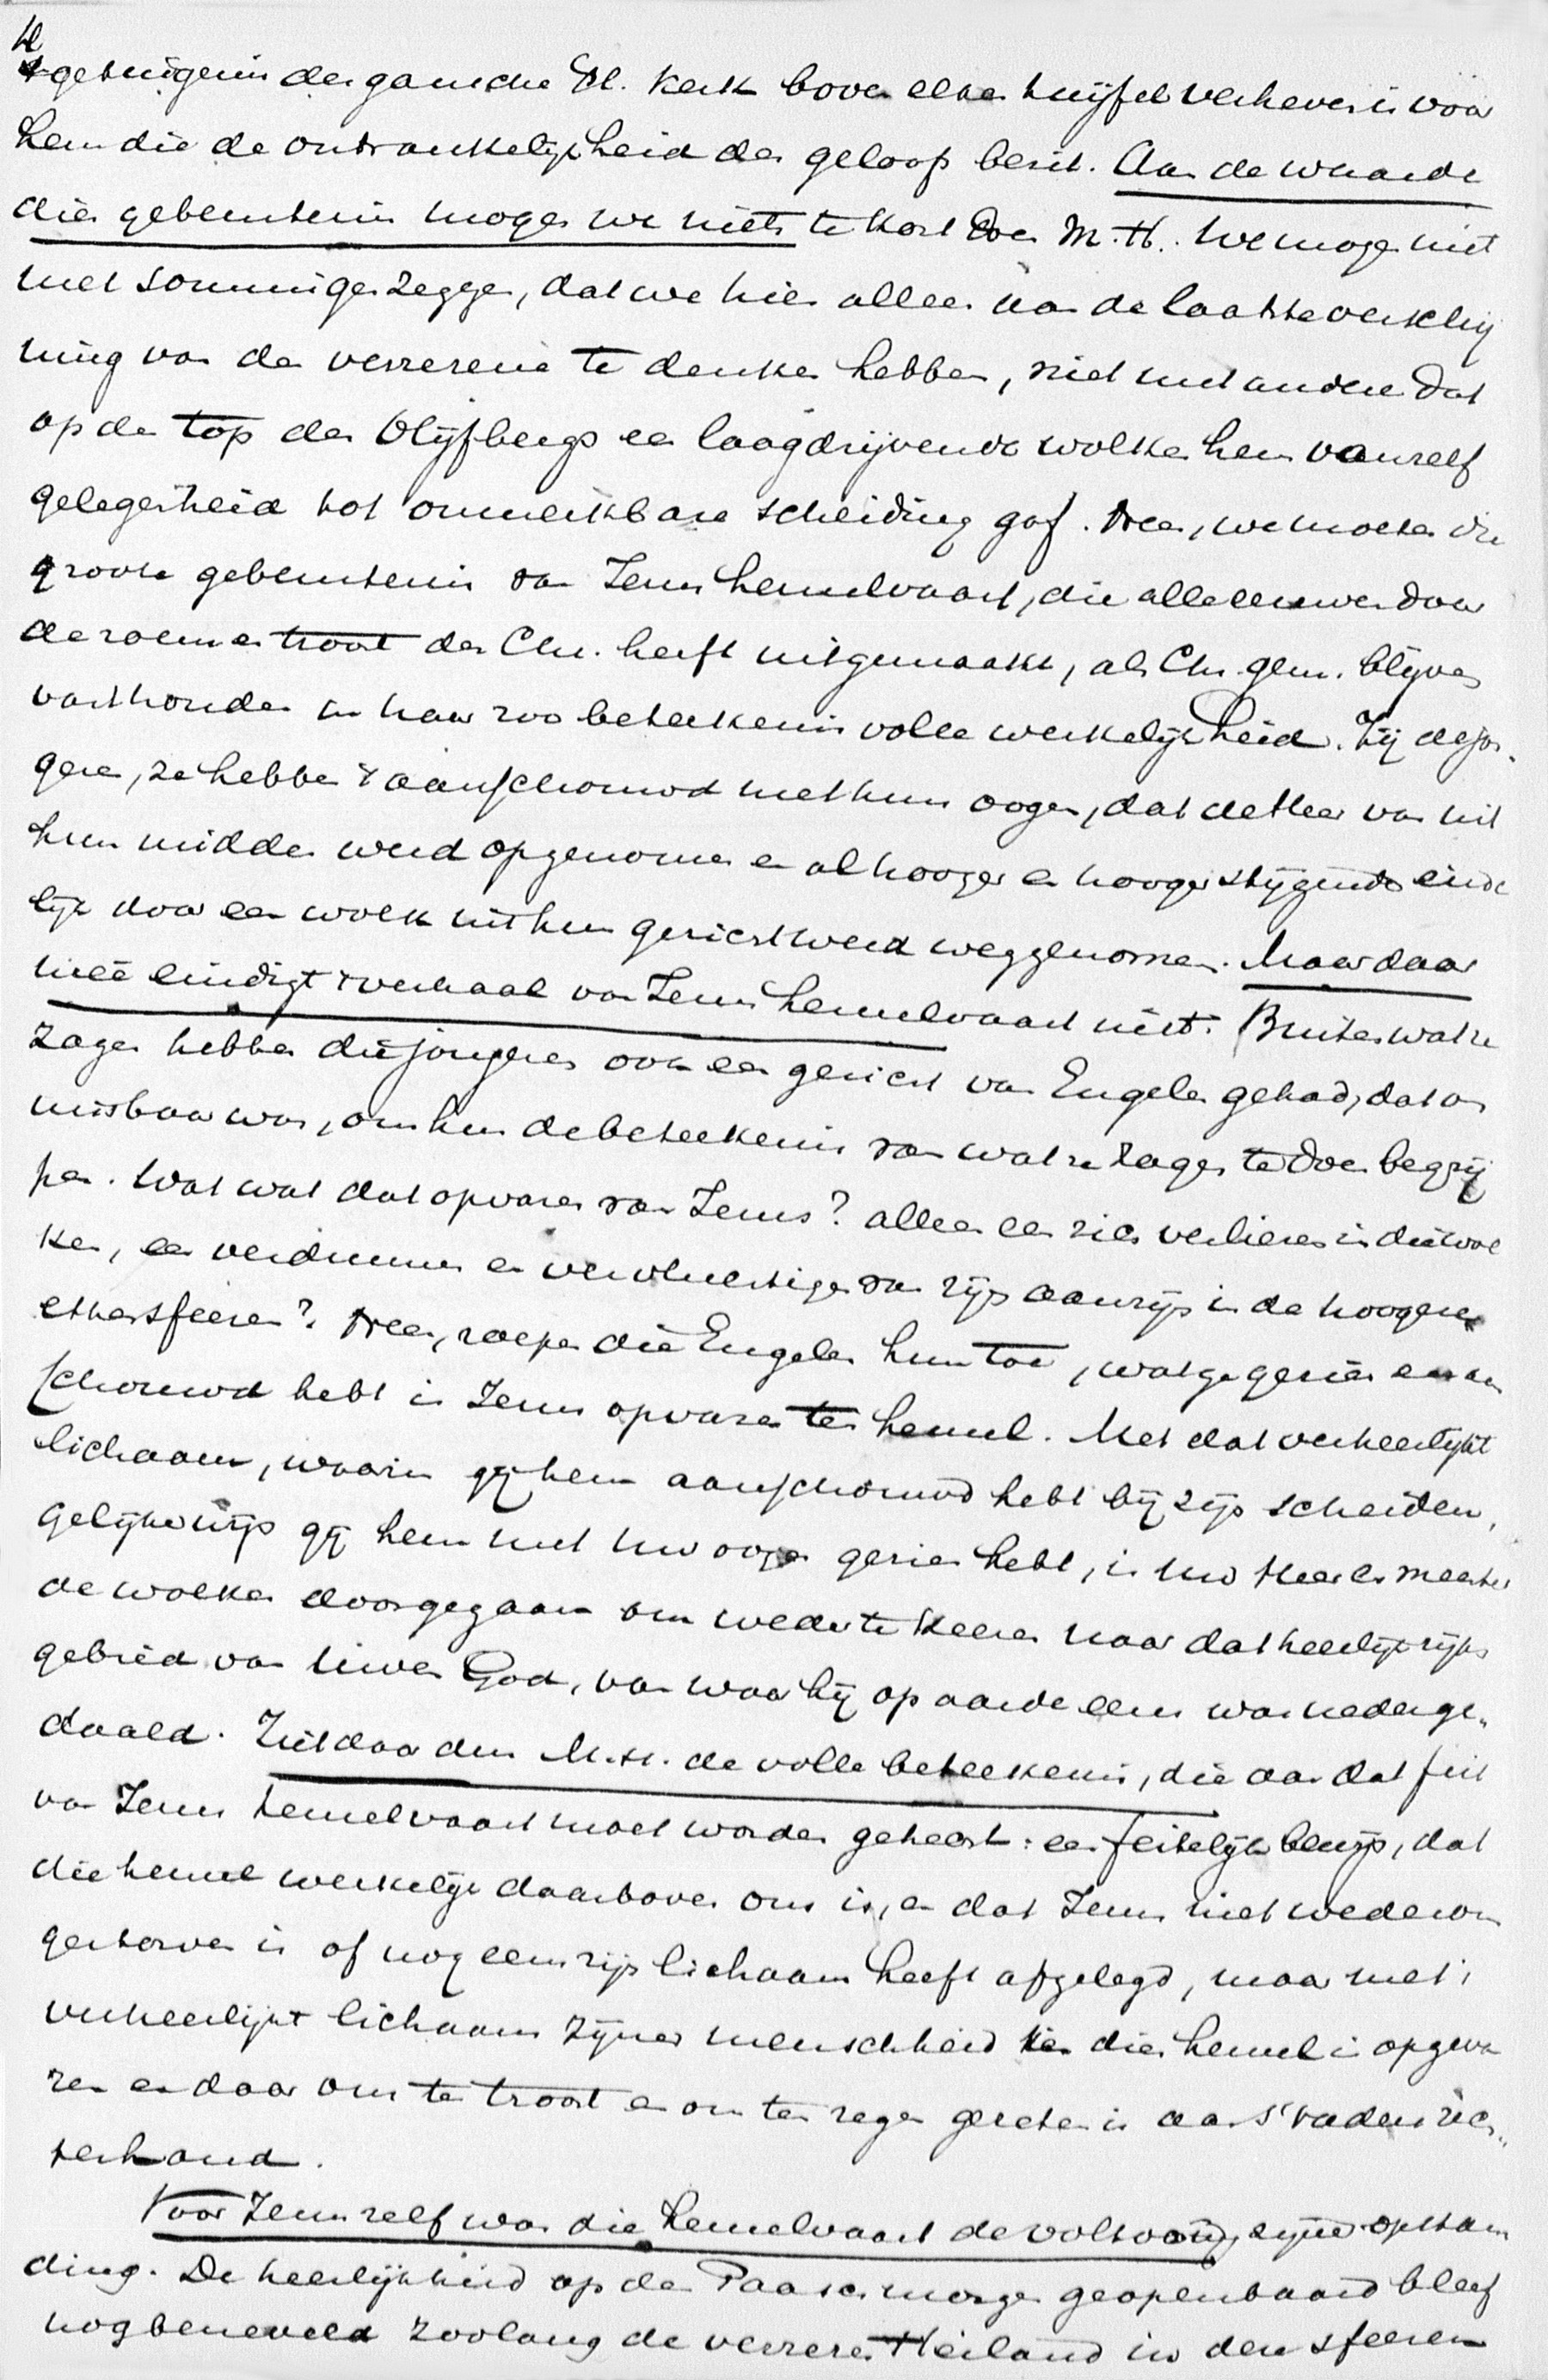 't getuigenis der gansche Chr. Kerk boven elken twijfel verheven is voor
hem die de ontvankelijkheid des geloofs bezit. Aan de waarde
dier gebeurtenis mogen we niets te kort doen M.H. We mogen niet
met sommigen zeggen, dat we hier alleen aan de laatste verschij
ning van den verrezene te denken hebben, niet met anderen dat
op den top des Olijfbergs een laagdrijvende wolk hem vanzelf
gelegenheid tot onmerkbare scheiding gaf. Neen, we moeten die
groote gebeurtenis van Jezus hemelvaart, die alle eeuwen door
de roem en troost der Chr. heeft uitgemaakt, als Chr. gem. blijven
vasthouden in haar zoo beteekenisvolle werkelijkheid. Zij de jon-
geren, ze hebben 't aanschouwd met hun oogen, dat de Heer van uit
hun midden werd opgenomen en al hooger en hooger stijgende einde
lijk door een wolk uit hun gezicht werd weggenomen. Maar daar
mee eindigt 't verhaal van Jezus hemelvaart niet. Buiten wat ze
zagen hebben die jongeren ook een gezicht van Engelen gehad, dat on
misbaar was, om hun de beteekenis van wat ze zagen te doen begrij
pen. Wat was dat opvaren van Jezus? alleen een zich verliezen in die wol
ken, een verdunnen en vervluchtigen van zijn aanzijn in de hoogere
ethersfeeren? Neen, roepen die Engelen hun toe, wat ge gezien en aan
schouwd hebt is Jezus opvaren ten hemel. Met dat verheerlijkt
lichaam, waarin gij hem aanschouwd hebt bij zijn scheiden,
gelijkerwijs gij hem met uw oogen gezien hebt, is uw Heer en meester
de wolken doorgegaan om weder te keeren naar dat heerlijk rijks
gebied van uwen God, van waar hij op aarde eens was nederge-
daald. Ziet daar dan M.H. de volle beteekenis, die aan dat feit
van Jezus hemelvaart moet worden gehecht: een feitelijk bewijs, dat
die hemel werkelijk daarboven ons is, en dat Jezus niet wederom
gestorven is of nog eens zijn lichaam heeft afgelegd, maar met 't
verheerlijkt lichaam zijner menschheid ten dien hemel is opgeva
ren en daar ons ten troost en ons ten zegen gezeten is aan 's Vaders rech-
terhand.
Voor Jezus zelf was die hemelvaart de voltooiing zijner opstan
ding. De heerlijkheid op den Paaschmorgen geopenbaard bleef
nog beneveld zoolang de verrezen Heiland in den sfeeren